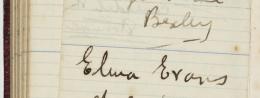 Bexley
Elma Evans